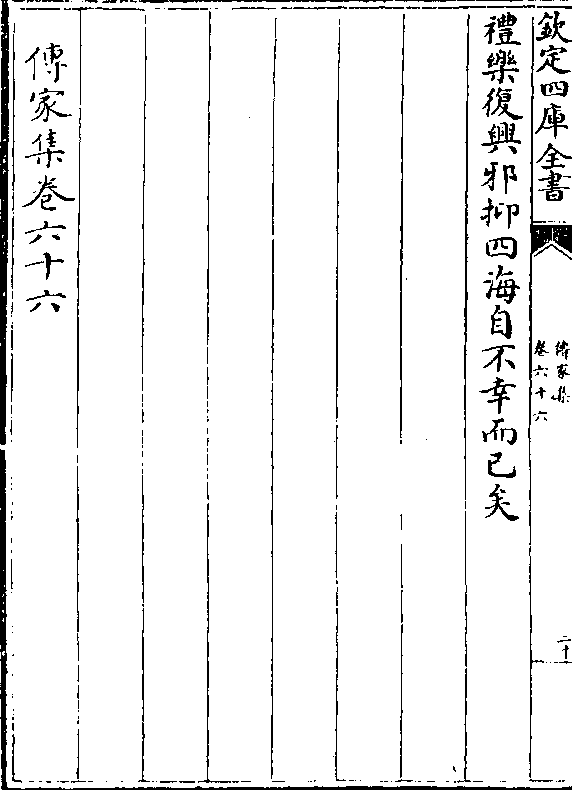 欽定四庫全書
傳家集
卷六十六
二十
禮樂復興邪抑四海自不幸而已矣
傳家集卷六十六